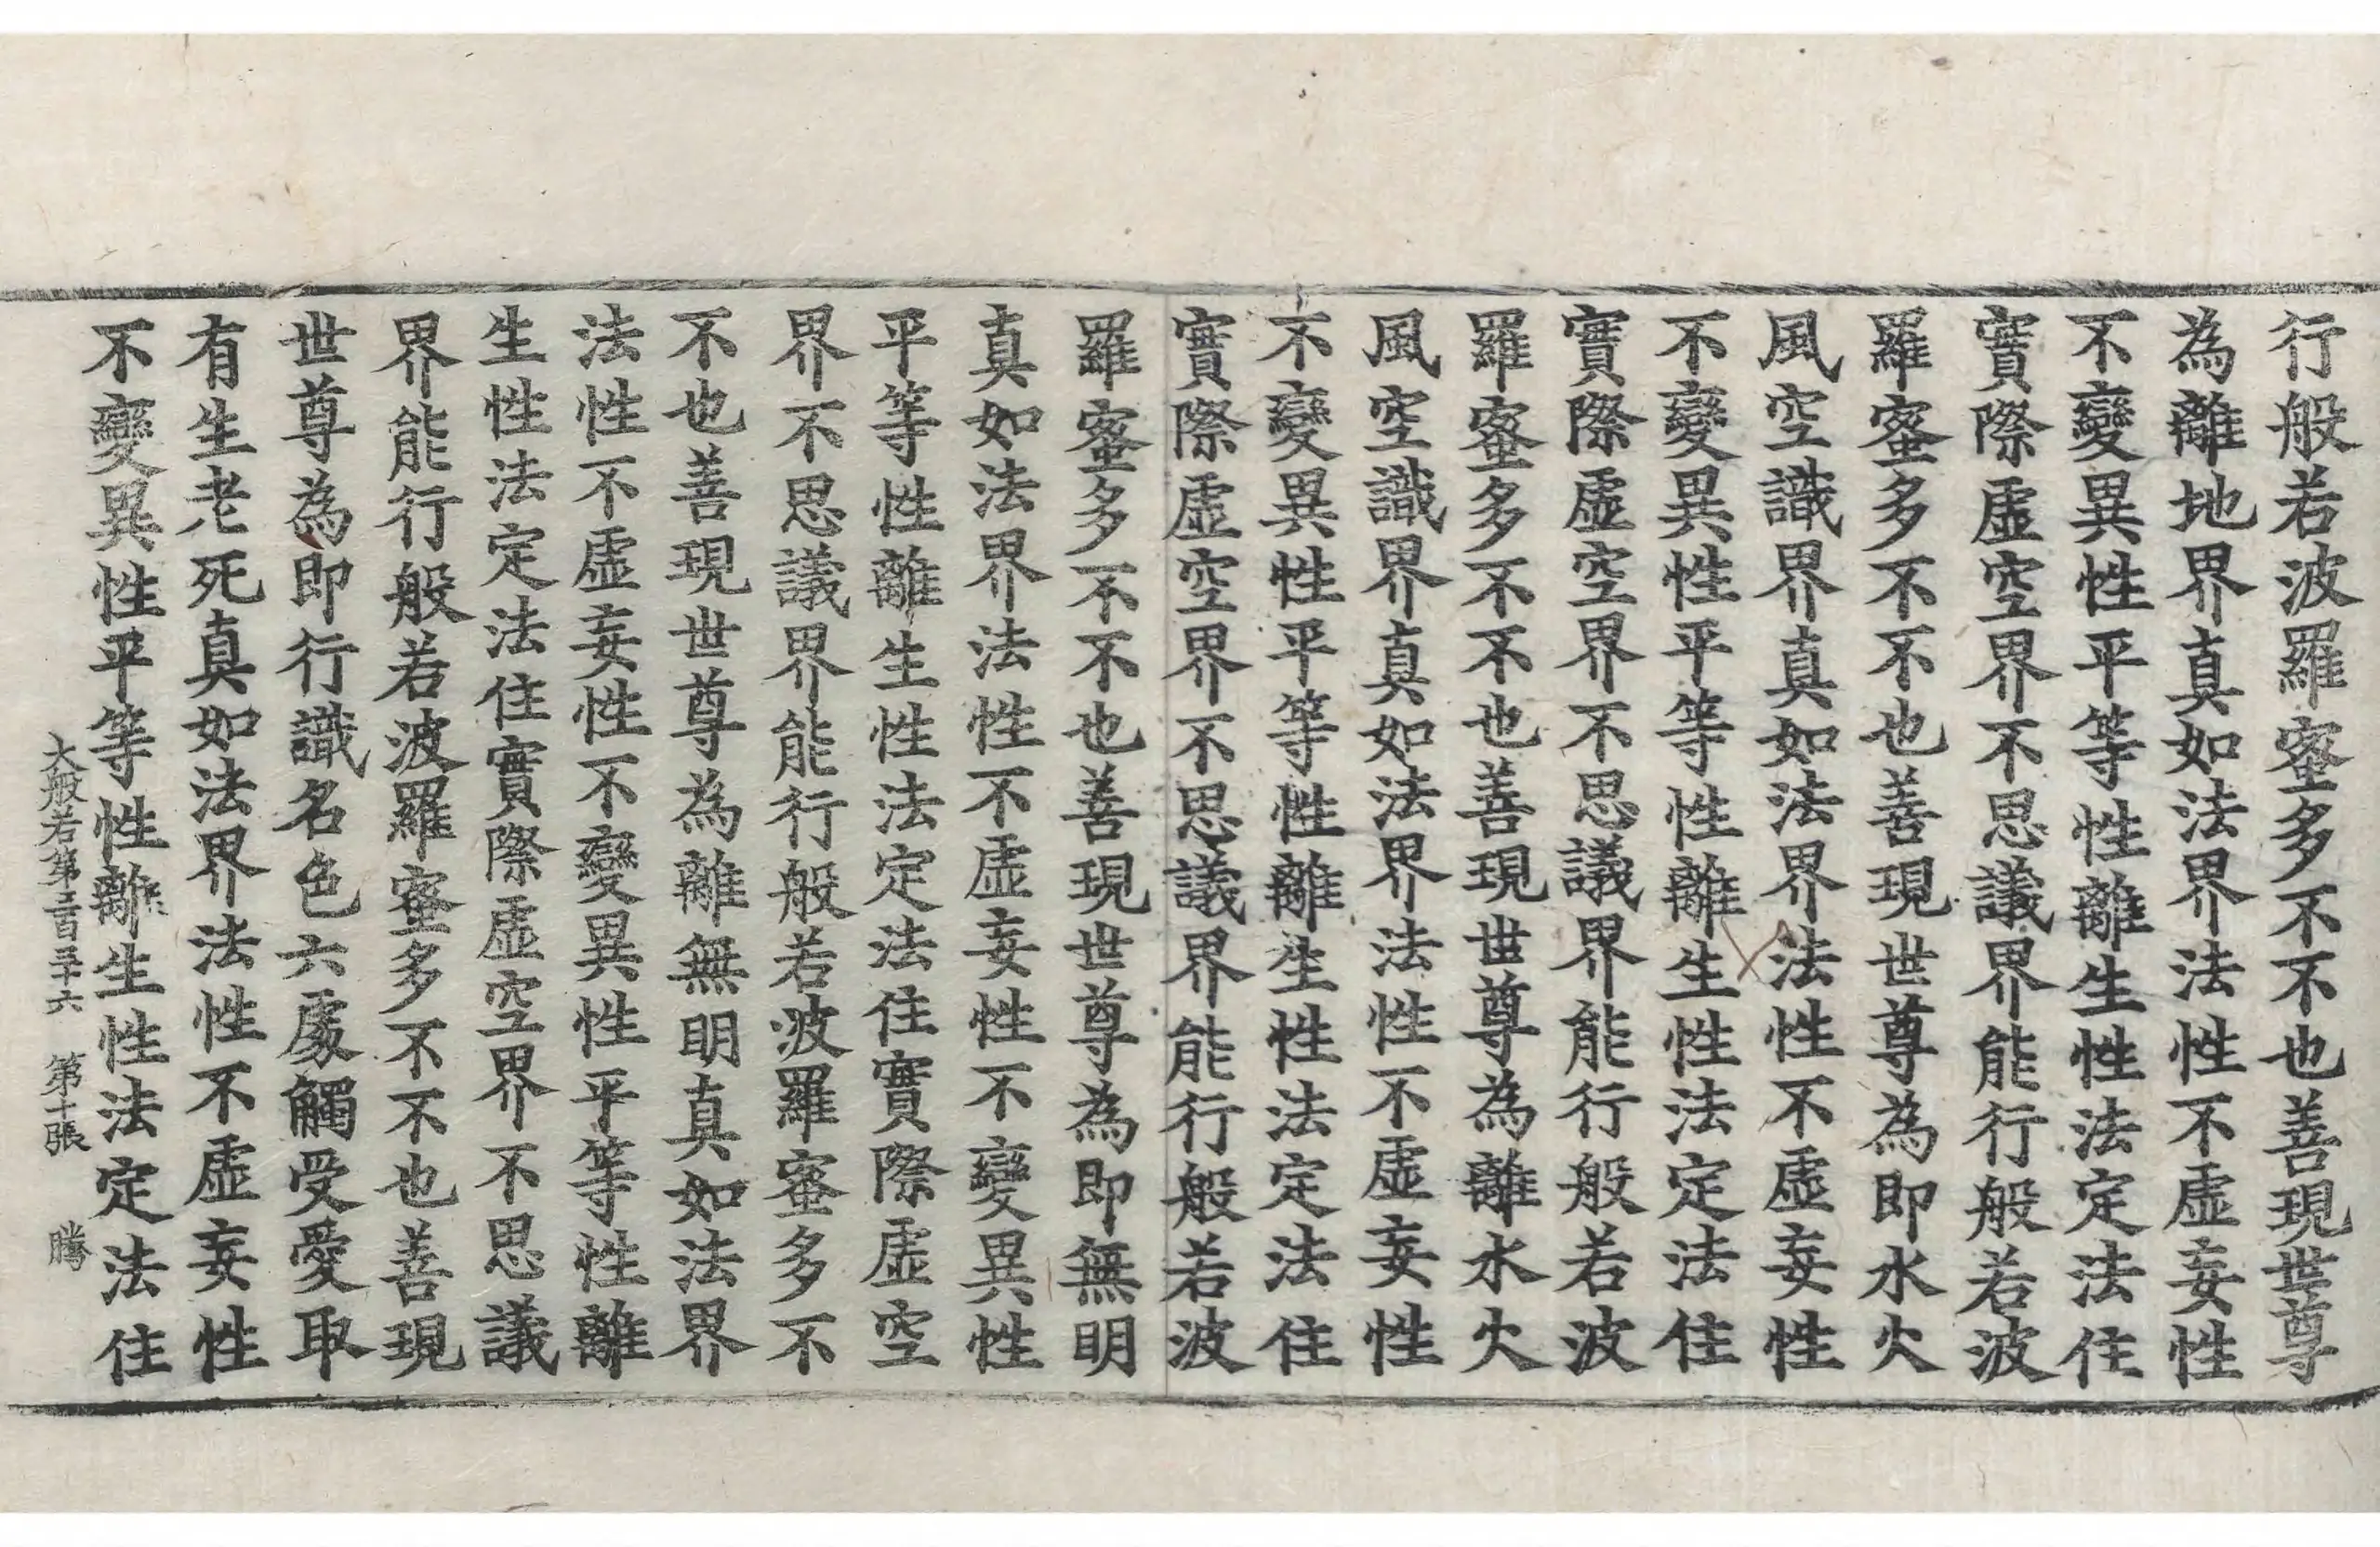 行般若波羅蜜多不不也善現世尊
為離地界真如法界法性不虛妄性
不變異性平等性離生性法定法住
實際虛空界不思議界能行般若波
羅蜜多不不也善現世尊為即水火
風空識界真如法界法性不虛妄性
不變異性平等性離生性法定法住
實際虛空界不思議界能行般若波
羅蜜多不不也善現世尊為離水火
風空識界真如法界法性不虛妄性
不變異性平等性離生性法定法住
實際虛空界不思議界能行般若波
羅蜜多不不也善現世尊為即無明
真如法界法性不虛妄性不變異性
平等性離生性法定法住實際虛空
界不思議界能行般若波羅蜜多不
不也善現世尊為離無明真如法界
法性不虛妄性不變異性平等性離
生性法定法住實際虛空界不思議
界能行般若波羅蜜多不不也善現
世尊為即行識名色六處觸受愛取
有生老死真如法界法性不虛妄性
不變異性平等性離生性法定法住
大般若第三百三十六 第十張 騰